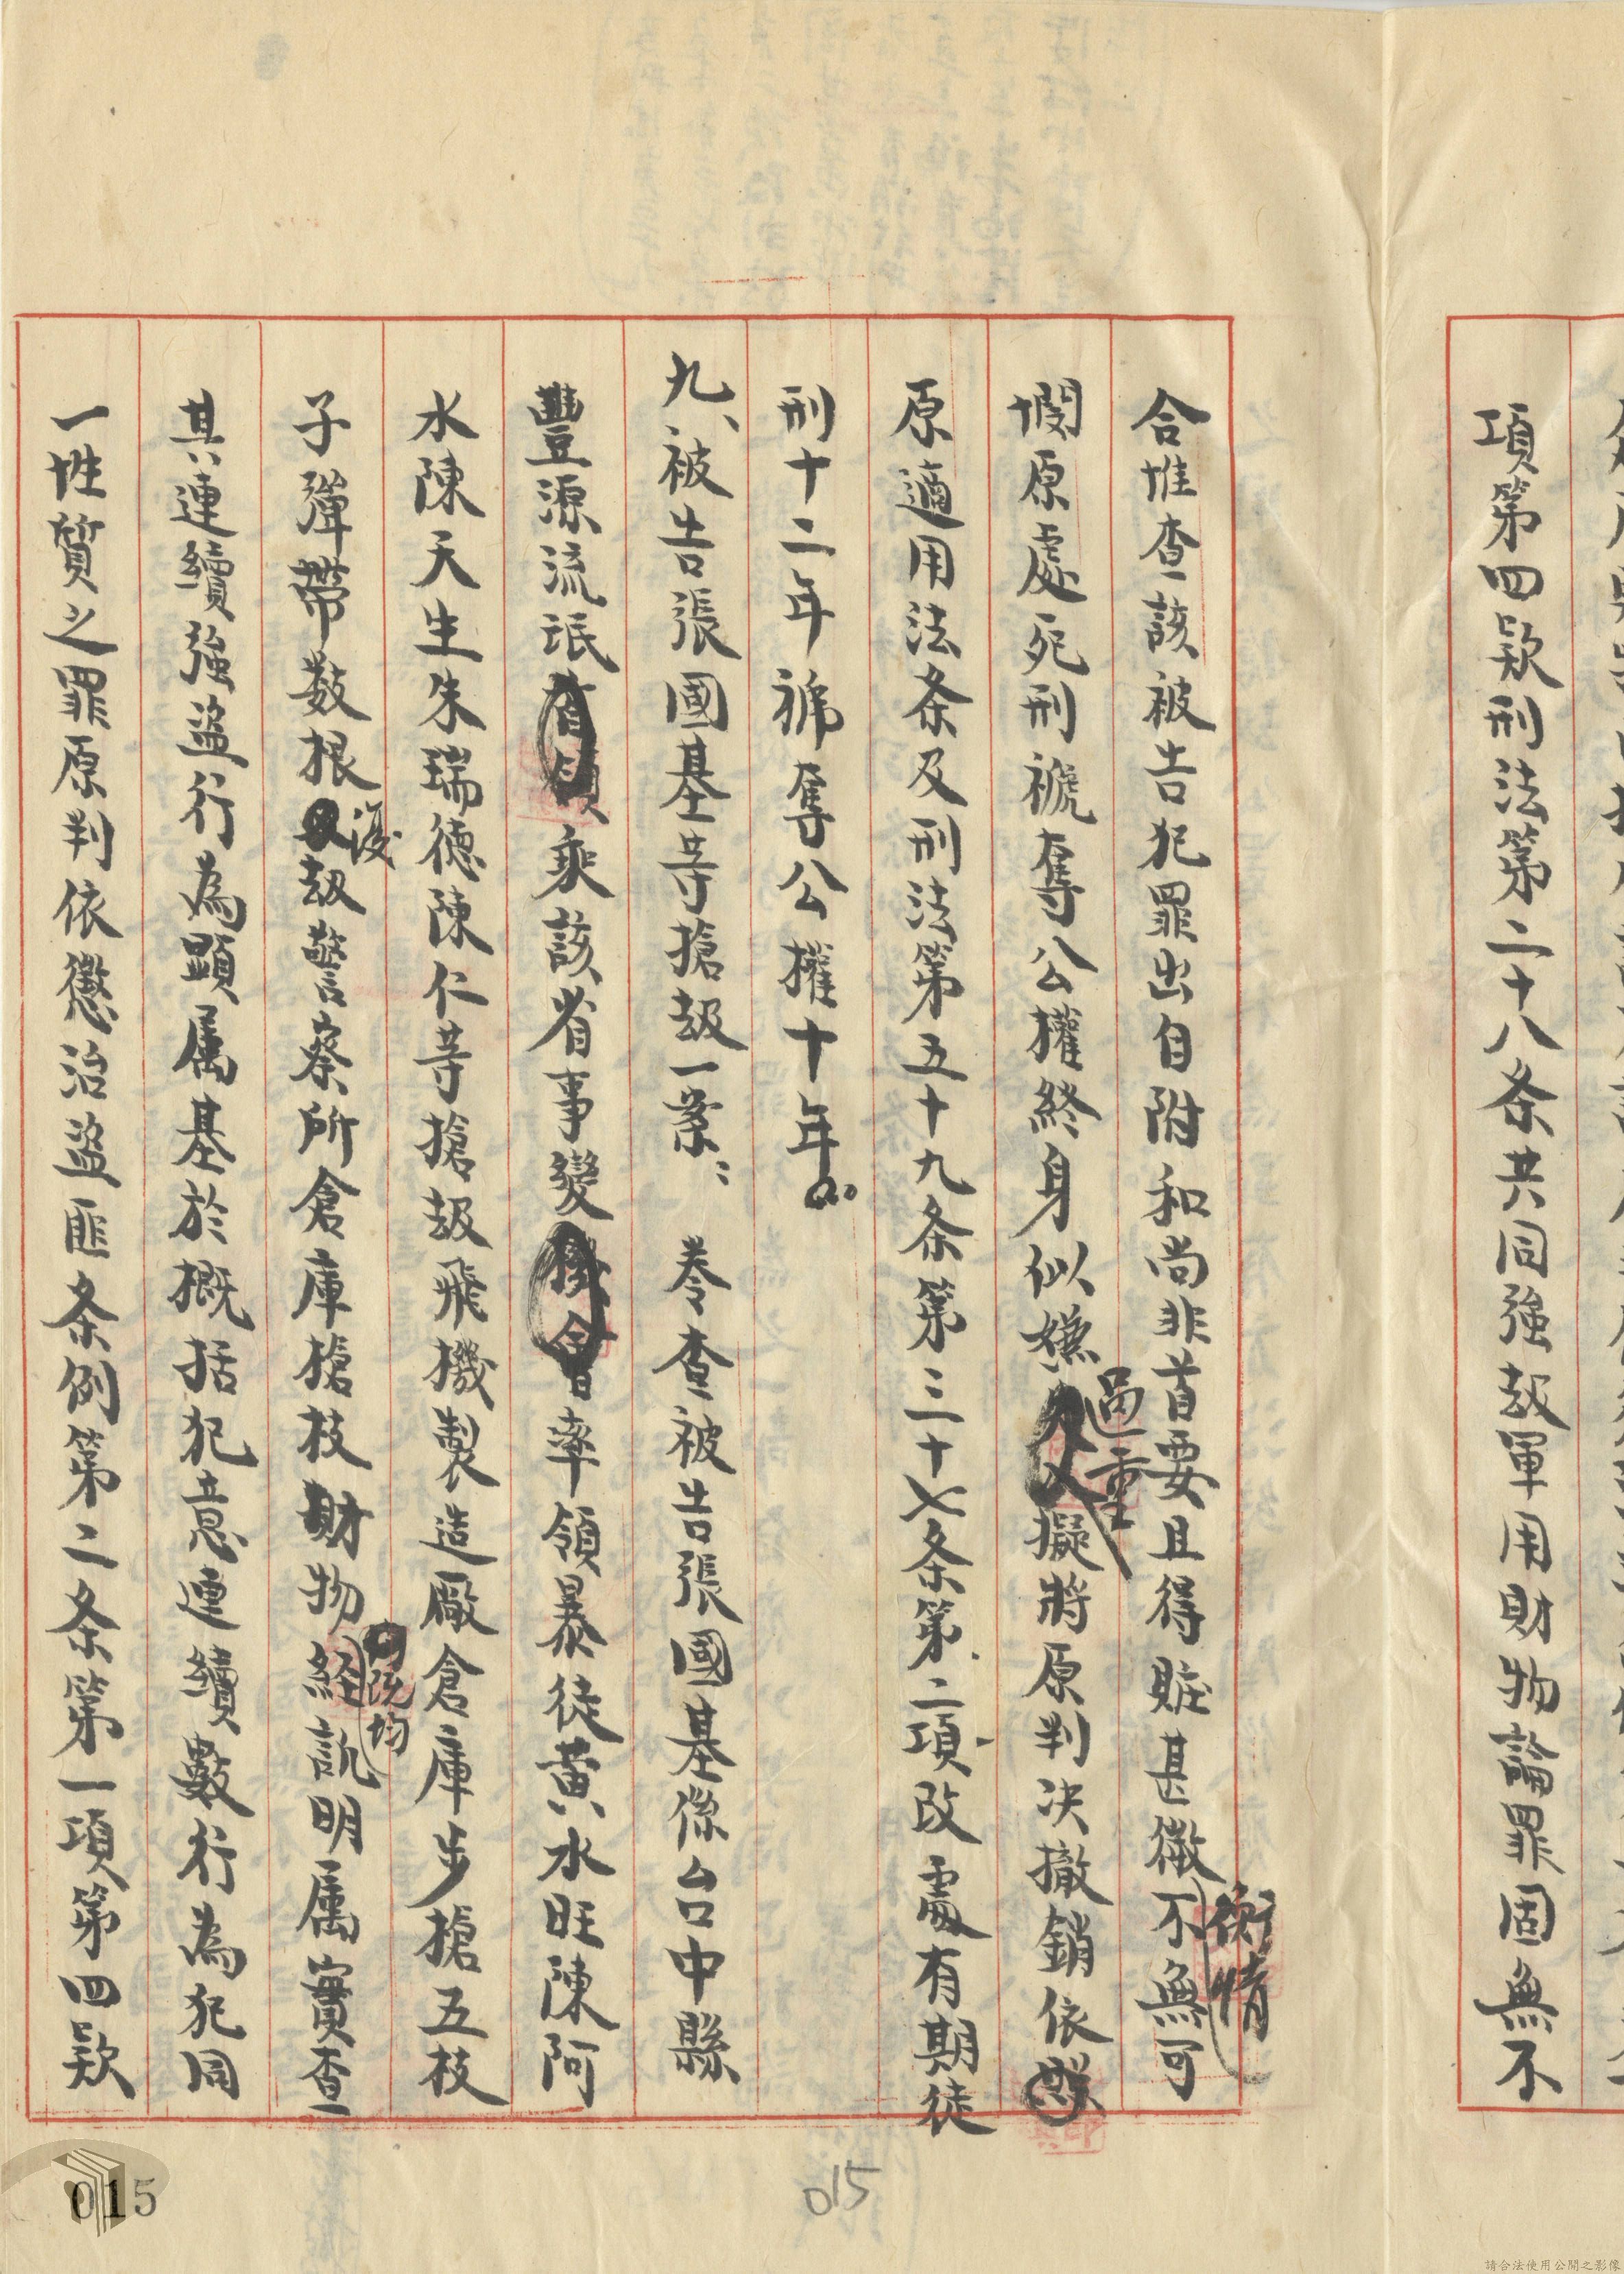 項第四款刑法第二十八条共同強刼軍用財物論罪固無不
合惟查該被告犯罪出自附和尚非首要且得賍甚微不無可
衡情
憫原處死刑褫奪公權終身似嫌擬將原判决撤銷依
過重
原適用法条及刑法第五十九条第三十七条第二項改處有期徒
刑十二年褫奪公權十年。
九、被告張國基等搶刼一案： 奉查被告張國基係台中縣
豐源流氓乘該省事變機會率領暴徒黄水旺陳阿
水陳天生朱瑞德陳仁等搶刼飛機製造廠倉庫步搶五枝
子彈帶数根刼警察所倉庫槍枝財物經訊明属實查
復
既均
其連續強盜行為顯属基於概括犯意連續數行為犯同
一性質之罪原判依懲治盜匪条例第二条第一項第四款
015
015
請合法使用公開之影像